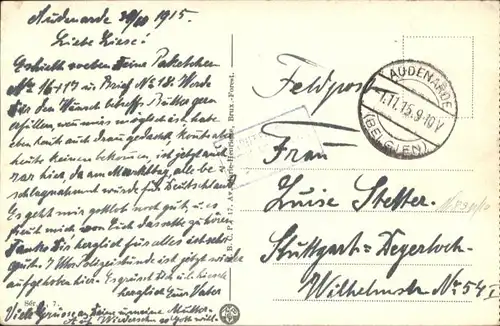 Audenarde 30/10 1915.
Liebe Liese!
Erhielt soeben Deine Paketchen
No 16+17 u. Brief No 18. Werde
Dir den Wunsch betreffs Butter gern
erfüllen, wenn es möglich ist, habe
heute auch daran gedacht, konnte aber
heute keinen bekommen, ist jetzt auch
rar hier, da am Markttag, alle be-
schlagnahmt wurde für Deutschland.
Es geht mir gottlob noch gut, u.
freut mich von Euch dasselbe zu hören
Danke Dir herzlich für alles ist sehr
gut. 7 Uhr Polizeistunde ist jetzt wieder
aufgehoben hier. Es grüsst Dich
herzlich Euer Vater
Viele Grüsse an meine Mutter
Auf Wiedersehn so Gott will.
Sér. 7.
B. C. P. A. 17, Av. Brux.-Forest.
Feldpost
AUDENARDE
1.11.15. 9-10 V
(BELGIEN)
Frau
Luise Stetter.
Stuttgart=Degerloch
Wilhelmstr No 54 I